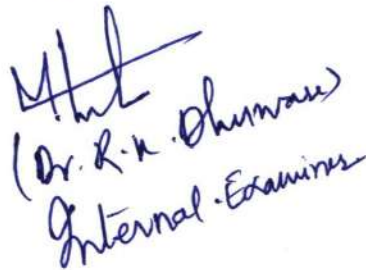 (Dr. R. K. Dhunware)
Internal. Examiner